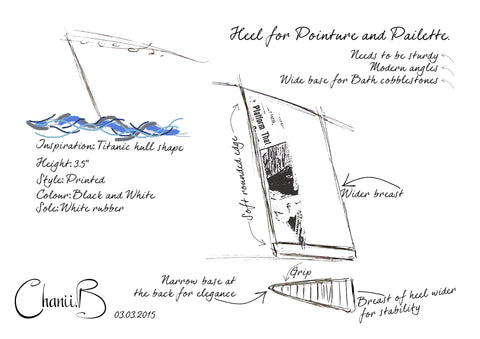 Heel for Pointure and Pailette.
Needs to be sturdy
Modern angles
Wide base for Bath cobblestones
Inspiration: Titanic hull shape
Height: 3.5"
Style: Printed
Colour: Black and White
Sole: White rubber
Soft rounded edge
Platform That
Wider breast
Grip
Narrow base at
the back for elegance
Breast of heel wider
for stability
Chanii.B
03.03.2015